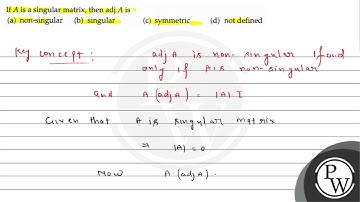 If A is a singular matrix, then adj A is
(a) non-singular (b) singular (c) symmetric (d) not defined
Key concept: adj A is non-singular if and
only if A is non-singular
and A (adj A) = |A| I
Given that A is singular matrix
⇒ |A| = 0
Now A·(adj A).
P
W